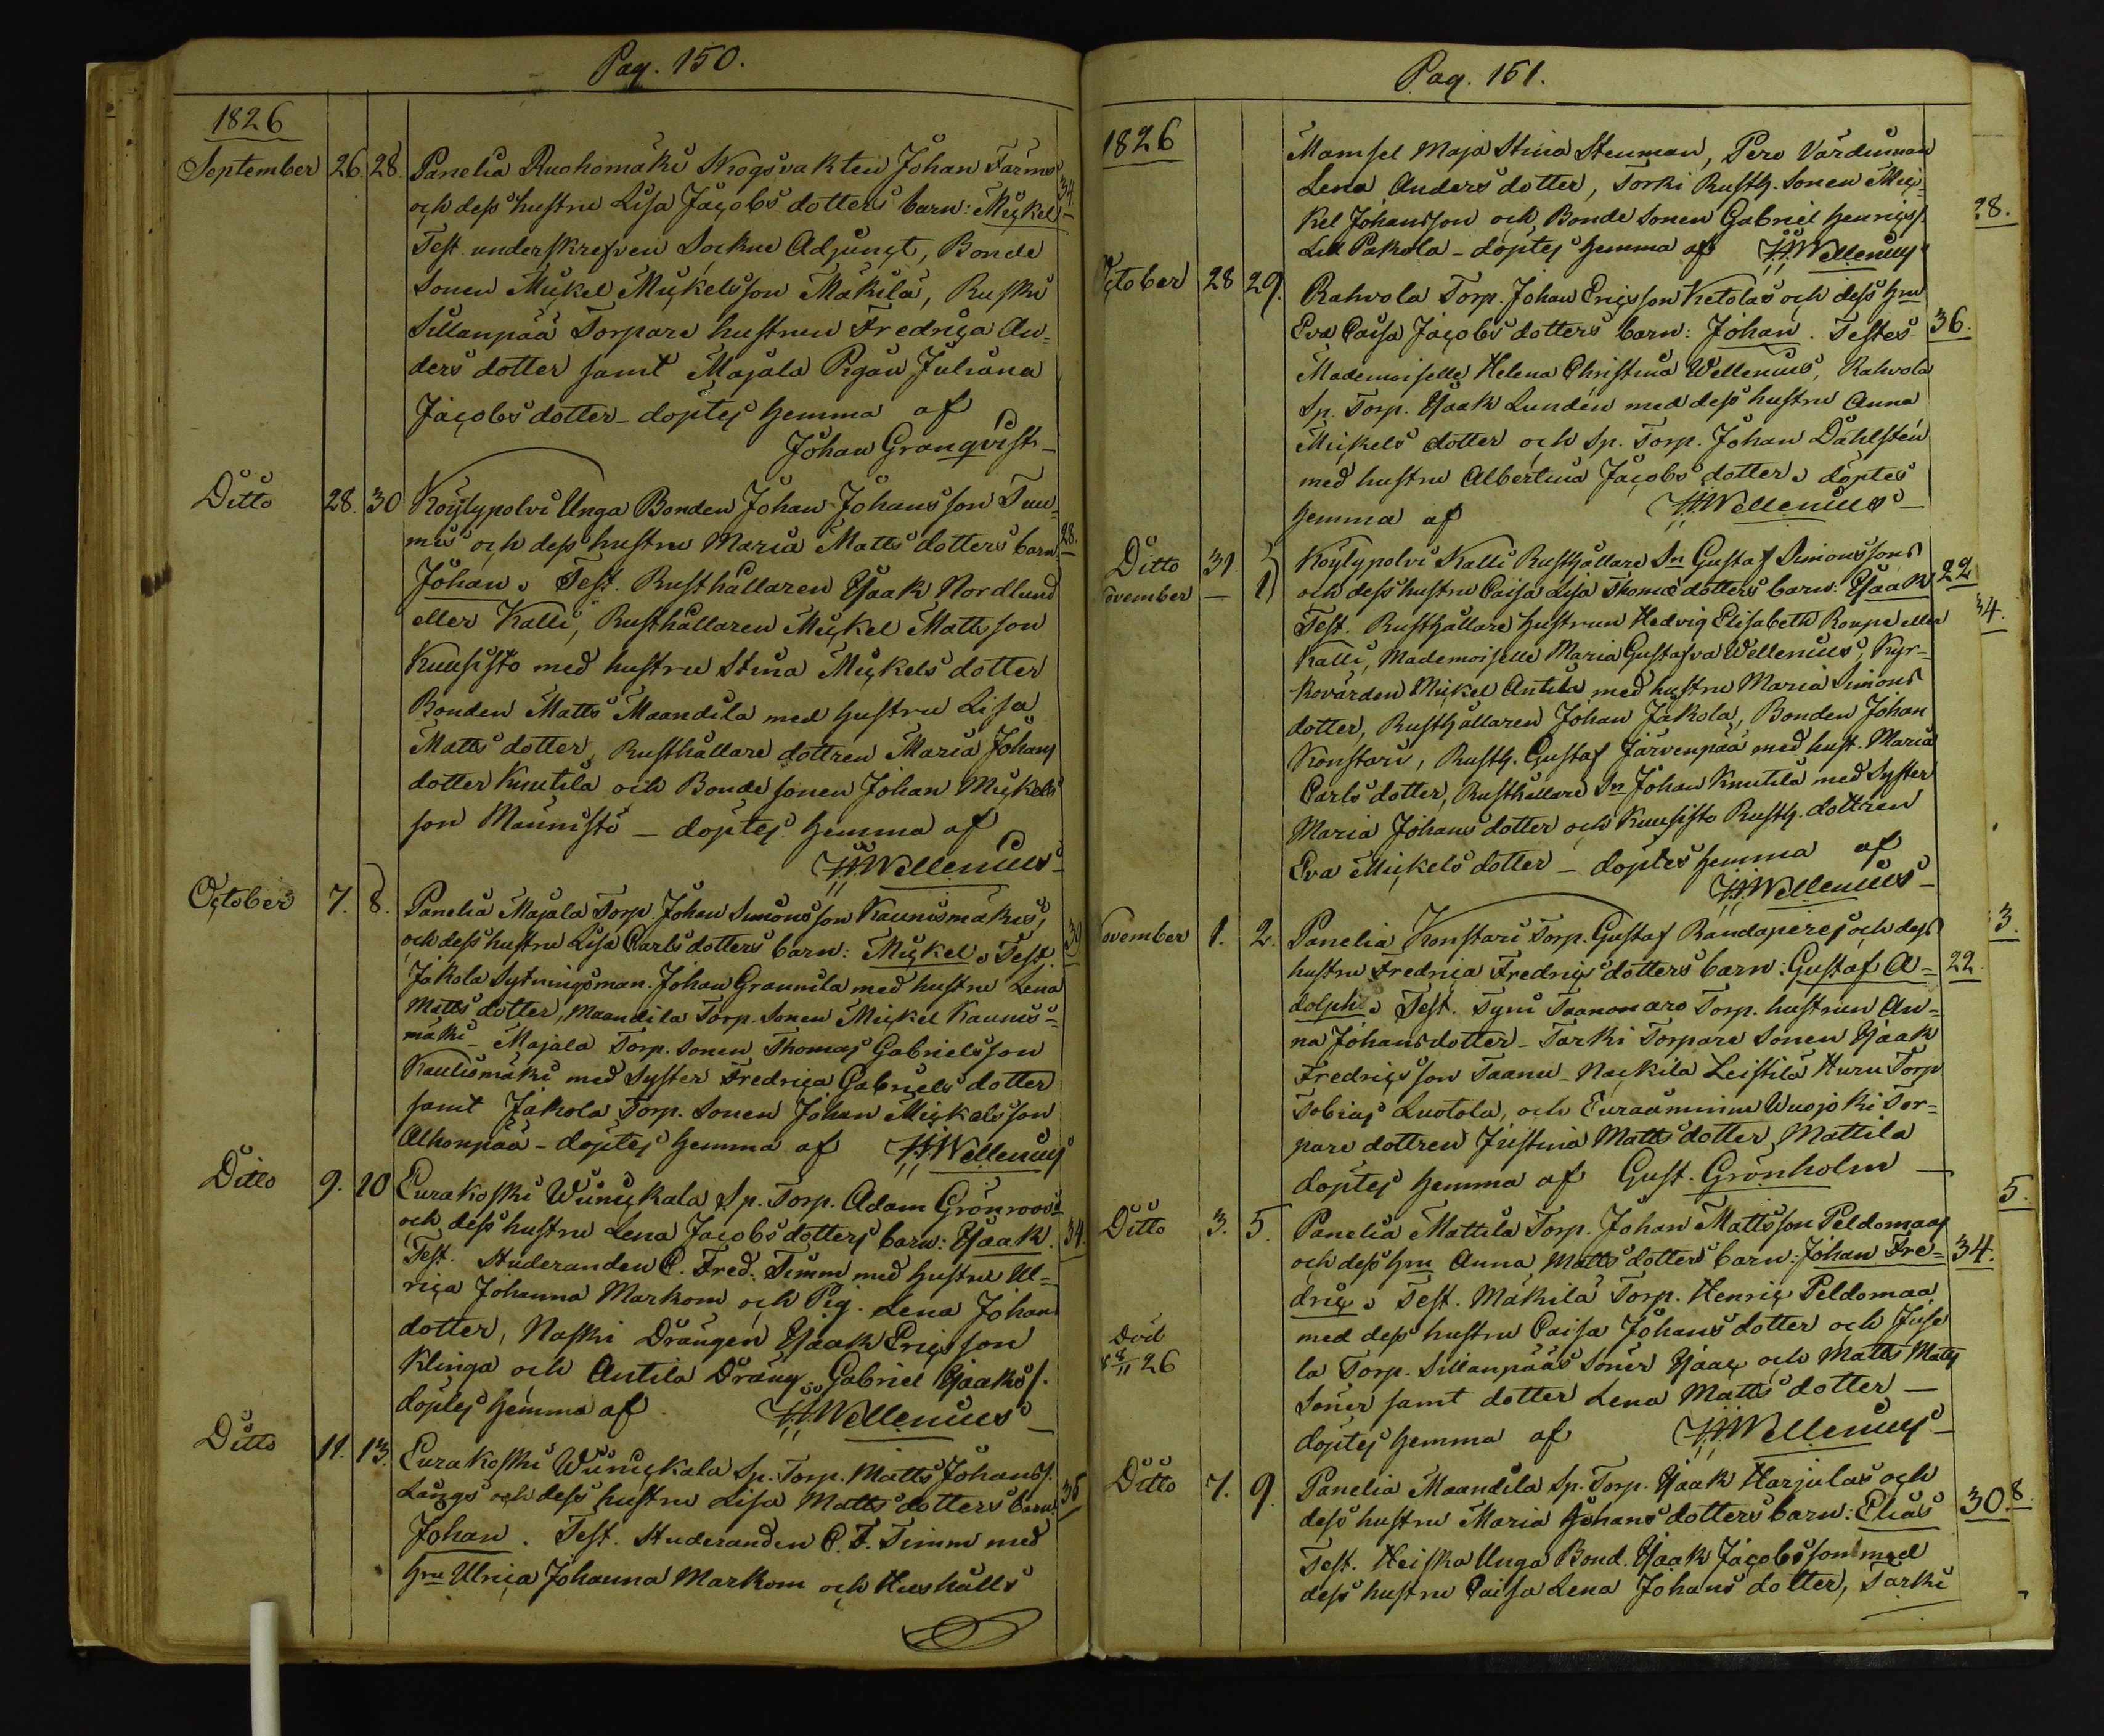 Pag. 150.
1826
September 26. 28. Panelia Ruohomäki Skogsvakten Johan Farms
och dess hustru Lisa Jacobs dotters barn: Mickel 34
Test. underskrefven Sockne Adjunct, Bonde
Sonen Mickel Mickelsson Mäkilä, Ruski
Sillanpää Torpare hustrun Fredrica An=
ders dotter samt Majala Pigan Juliana
Jacobs dotter - döptes hemma af
Johan Granqvist
Ditto 28. 30 Köylypolvi Unga Bonden Johan Johansson Tum=
mis och dess hustru Maria Matts dotters barn 28.
Johan. Test. Rusthållaren Isaak Nordlund
eller Kalli, Rusthållaren Mickel Mattsson
Kuusisto med hustru Stina Mickels dotter
Bonden Matts Maandila med hustru Lisa
Matts dotter, Rusthållare dottren Maria Johans
dotter Knutila och Bonde sonen Johan Mickels
son Männistö - döptes hemma af
H.H. Wellenius
October 7. 8. Panelia Majala Torp. Johan Simonsson Kaunismäkis,
och dess hustru Lisa Carls dotters barn: Mickel. Test. 30
Jakola Sytningsman. Johan Grannila med hustru Lena
Matts dotter, Maandila Torp. Sonen Mickel Kaunis=
mäki - Majala Torp. Sonen Thomas Gabrielsson
Kaulismäki med Syster Fredrica Gabriels dotter
samt Jakola Torp. Sonen Johan Mickelsson
Alhonpää - döptes hemma af H.H. Wellenius
Ditto 9. 10 Eurakoski Wuinickala Sp. Torp. Adam Grönroos
och dess hustru Lena Jacobs dotters barn: Isaak. 34.
Test. Studeranden C. Fred. Timm med hustru Ul=
rica Johanna Markom och Pig. Lena Johans
dotter, Naski Drängen Isaak Ericsson
Klinga och Antila Dräng Gabriel Isaakss.
döptes hemma af H.H. Wellenius
Ditto 11. 13. Eurakoski Wuinickala Sp. Torp. Matts Johanss.
Längs och dess hustru Lisa Matts dotters barn: 35
Johan. Test. Studeranden C. F. Timm med
Hru Ulrica Johanna Markom och Hushålls
Pag. 151.
1826
Mamsel Maja Stina Stenman, Pero Värdinnan
Lena Anders dotter, Torki Rusth. Sonen Mic=
kel Johansson och Bonde Sonen Gabriel Henricss. 28.
Pakola - döptes hemma af H.H. Wellenius
October 28 29. Rahvola Torp. Johan Ericsson Ketolas och dess Hru
Eva Caisa Jacobs dotters barn: Johan. Testes 36.
Mademoiselle Helena Christina Wellenius, Rahvola
Sp. Torp. Isaak Lundén med dess hustru Anna
Mickels dotter och Sp. Torp. Johan Dahlstén
med hustru Albertina Jacobs dotter. döptes
hemma af H.H. Wellenius
Ditto 31. Köylypolvi Kalli Rusthållare Sn Gustaf Simonssons
November — 1) och dess hustru Caisa Lisa Thomæ dotters barn: Isaak 22
Test. Rusthållare Hustrun Hedvig Elisabeth Roupe eller 34.
Kalli, Mademoiselle Maria Gustafva Wellenius, Kyr-
kovärden Mickel Antila med hustru Maria Simons
dotter, Rusthållaren Johan Jakola, Bonden Johan
Konstari, Rusth. Gustaf Järvenpää med hust. Maria
Carls dotter, Rusthållare Sn Johan Knutila med Syster
Maria Johans dotter och Kuusisto Rusth. dottren
Eva Mickels dotter - döptes hemma af
H.H. Wellenius
November 1. 2. Panelia Konstari Torp. Gustaf Randaperes och dess 3.
hustru Fredrica Fredrics dotters barn: Gustaf A= 22.
dolph. Test. Tyni Taanmaro Torp. hustrun An=
na Johansdotter - Tarki Torpare Sonen Isaak
Fredricsson Taanu - Nackila Leistilä Huru Torp
Tobias Luotola, och Euraåminne Wuojoki Tor=
pare dottren Justina Matts dotter Mattila
döptes hemma af Gust. Grönholm
Ditto 3. 5. Panelia Mattila Torp. Johan Mattsson Peldomaas 5.
och dess Hru Anna Matts dotters barn: Johan Fre= 34.
dric. Test. Mäkilä Torp. Henric Peldomaa
Död med dess hustru Caisa Johans dotter och Juse
26 la Torp. Sillanpääs Söner Isaac och Matts Matts
Söner samt dotter Lena Matts dotter —
döptes hemma af H.H. Wellenius
Ditto 7. 9. Panelia Maandila Sp. Torp. Isaak Harjulas och
dess hustru Maria Johans dotters barn: Elias 30. 8.
Test. Heiska Unga Bond. Isaak Jacobsson med
dess hustru Caisa Lena Johans dotter, Tarki